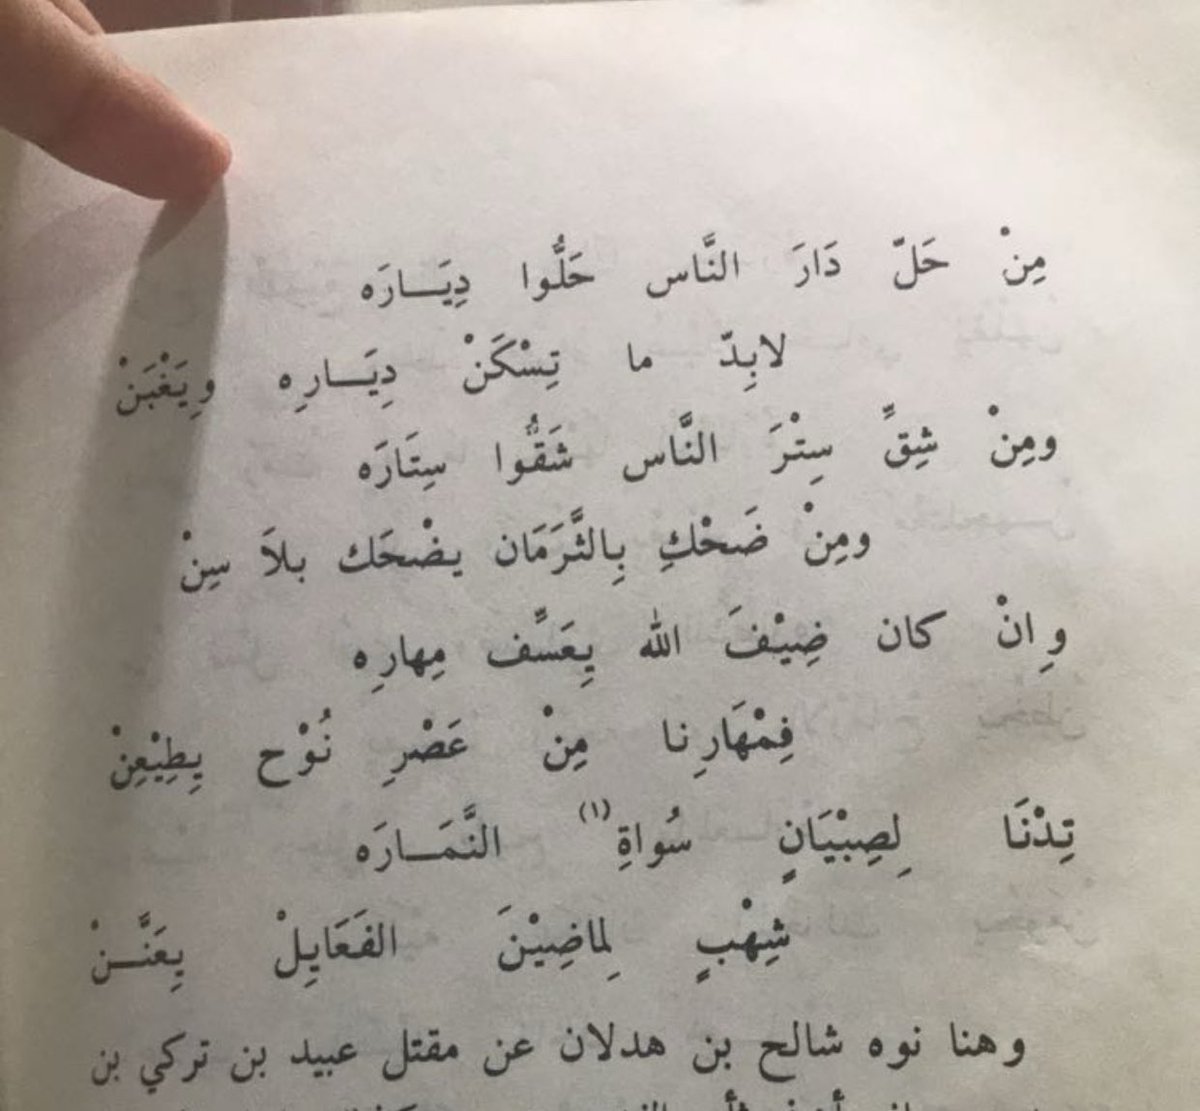 مِنْ حَلّ دَارَ النَّاس حَلُّوا دِيَـــارَه
لابِدّ ما تِسْكَنْ دِيَـــارِه ويَغْبَنْ
ومِنْ شِقِّ سِتْرَ النَّاس شَقُّوا سِتَارَه
ومِنْ ضَحْكِ بِالثَّرَمَان يضْحَك بلاَ سِنْ
وِانْ كان ضِيْفَ الله يِعَسِّف مِهارِه
فِمْهَارِنا مِنْ عَصْرِ نُوْح يِطِيْعِنْ
تِدْنَا لِصِبْيَانٍ سُواةِ (١) النَّمَـــارَه
شِهْبٍ لِماضِيْنَ الفَعَايِلْ يِعَنَّـــنْ
وهنا نوه شالح بن هدلان عن مقتل عبيد بن تركي بن